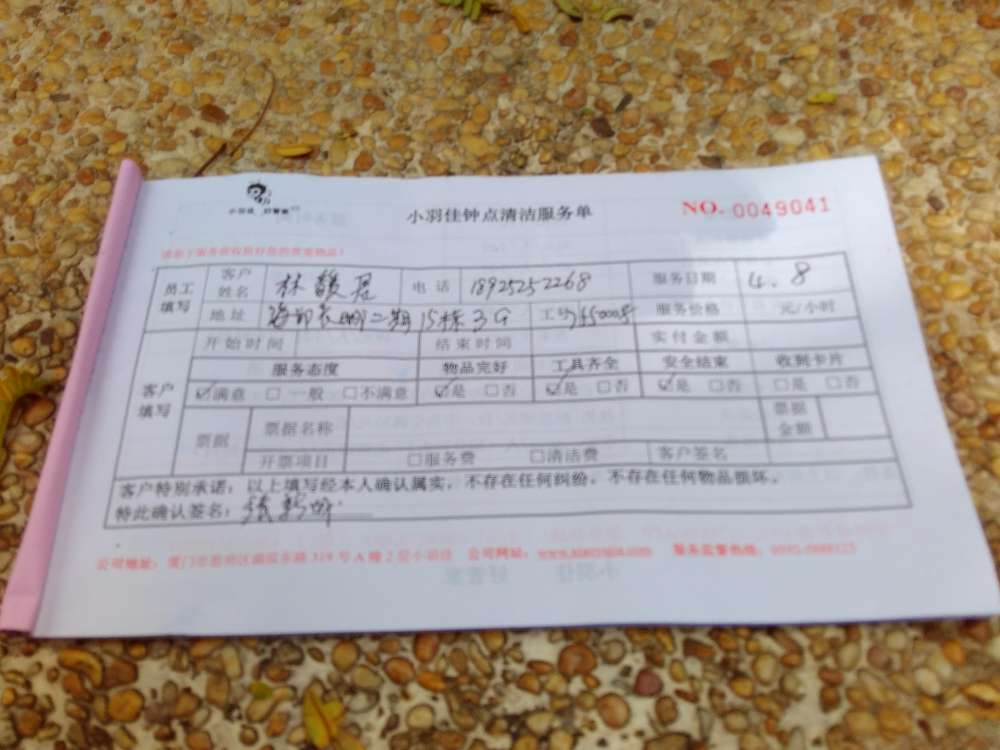 小羽佳 好管家
小羽佳钟点清洁服务单 NO. 0049041
员工填写 客户姓名 林馥君 电话 18925252268 服务日期 4.8
地址 二期15栋3G 工号 服务价格 元/小时
开始时间 结束时间 实付金额
客户填写 服务态度 物品完好 工具齐全 安全结束 收到卡片
☑满意 □一般 □不满意 ☑是 □否 ☑是 □否 ☑是 □否 □是 □否
票据 票据名称 票据金额
开票项目 □服务费 □清洁费 客户签名
客户特别承诺：以上填写经本人确认属实，不存在任何纠纷，不存在任何物品损坏。
特此确认签名：
公司地址： 319号A幢2层小羽佳 公司网址： 服务监督热线：